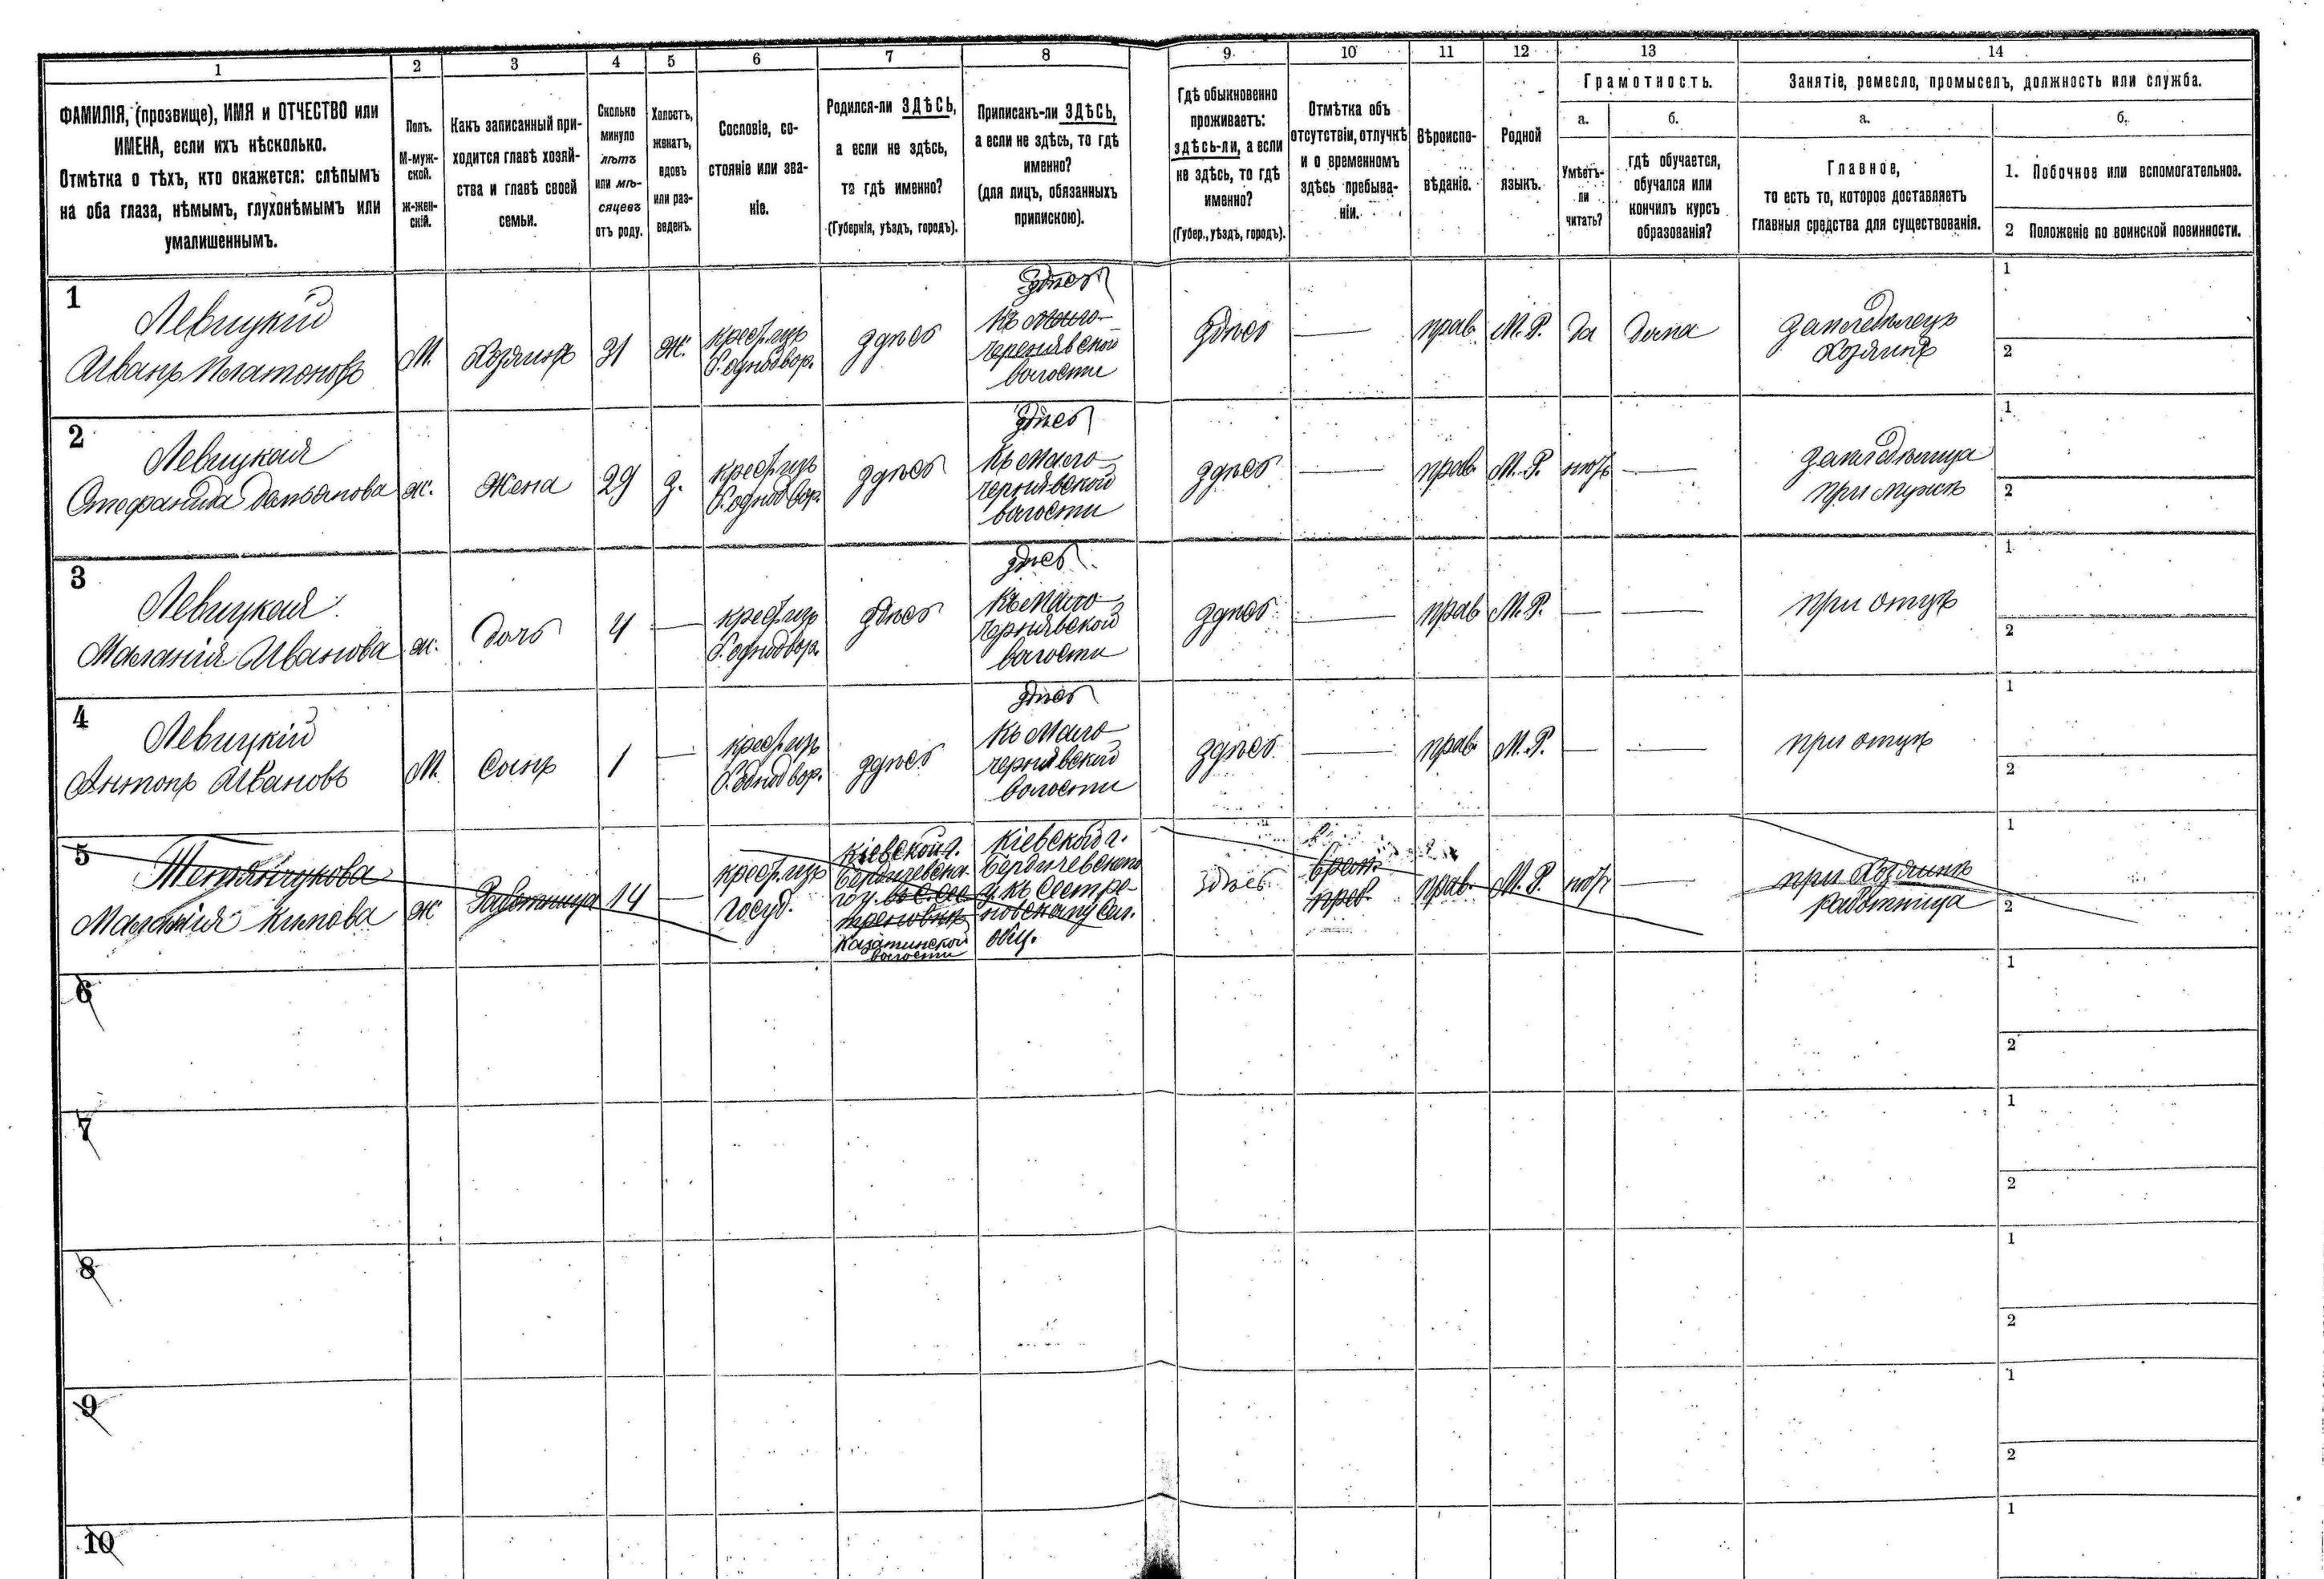 1 2 3 4 5 6 7 8 9 10 11 12 13 14
ФАМИЛІЯ, (прозвище), ИМЯ и ОТЧЕСТВО или
ИМЕНА, если ихъ нѣсколько.
Отмѣтка о тѣхъ, кто окажется: слѣпымъ
на оба глаза, нѣмымъ, глухонѣмымъ или
умалишеннымъ.
Полъ.
М-муж-
ской.
ж-жен-
скій.
Какъ записанный при-
ходится главѣ хозяй-
ства и главѣ своей
семьи.
Сколько
минуло
лѣтъ
или мѣ-
сяцевъ
отъ роду.
Холостъ,
женатъ,
вдовъ
или раз-
веденъ.
Сословіе, со-
стояніе или зва-
ніе.
Родился-ли ЗДѢСЬ,
а если не здѣсь,
то гдѣ именно?
(Губернія, уѣздъ, городъ).
Приписанъ-ли ЗДѢСЬ,
а если не здѣсь, то гдѣ
именно?
(для лицъ, обязанныхъ
припискою).
Гдѣ обыкновенно
проживаетъ:
здѣсь-ли, а если
не здѣсь, то гдѣ
именно?
(Губер., уѣздъ, городъ).
Отмѣтка объ
отсутствіи, отлучкѣ
и о временномъ
здѣсь пребыва-
ніи.
Вѣроиспо-
вѣданіе.
Родной
языкъ.
Грамотность.
а.
Умѣетъ-
ли
читать?
б.
гдѣ обучается,
обучался или
кончилъ курсъ
образованія?
Занятіе, ремесло, промыселъ, должность или служба.
а.
Главное,
то есть то, которое доставляетъ
главныя средства для существованія.
б.
1. Побочное или вспомогательное.
2 Положеніе по воинской повинности.
1
Левицкій
Иванъ Платоновъ
М.
Хозяинъ
31
Ж.
крест. изъ
б. однодвор.
здѣсь
здѣсь
къ Мало-
чернявской
волости
здѣсь
—
прав.
М. Р.
да
дома
земледѣлецъ
хозяинъ
1
2
2
Левицкая
Стефанида Демьянова
ж.
жена
29
з.
крест. изъ
б. однодвор.
здѣсь
здѣсь
къ Мало-
чернявской
волости
здѣсь
—
прав.
М. Р.
нѣтъ
—
земледѣлица
при мужѣ
1
2
3
Левицкая
Маланія Иванова
ж.
дочь
4
—
крест. изъ
б. однодвор.
здѣсь
здѣсь
къ Мало-
чернявской
волости
здѣсь
—
прав
М. Р.
—
—
при отцѣ
1
2
4
Левицкій
Антонъ Ивановъ
М.
сынъ
1
—
крест. изъ
б. однодвор.
здѣсь
здѣсь
къ Мало-
чернявской
волости
здѣсь
—
прав.
М. Р.
—
—
при отцѣ
1
2
5
Тетянчукова
Маланія Климова
ж
Работница
14
—
крест. изъ
госуд.
Кіевской г.
Бердичевска-
го у. въ с.
Казатинской
волости
Кіевской г.
Бердичевскаго
у. къ Сестре-
новскому сел.
общ.
здѣсь
врем.
преб.
прав.
М. Р.
нѣтъ
—
при хозяинѣ
работница
1
2
6
1
2
7
1
2
8
1
2
9
1
2
10
1